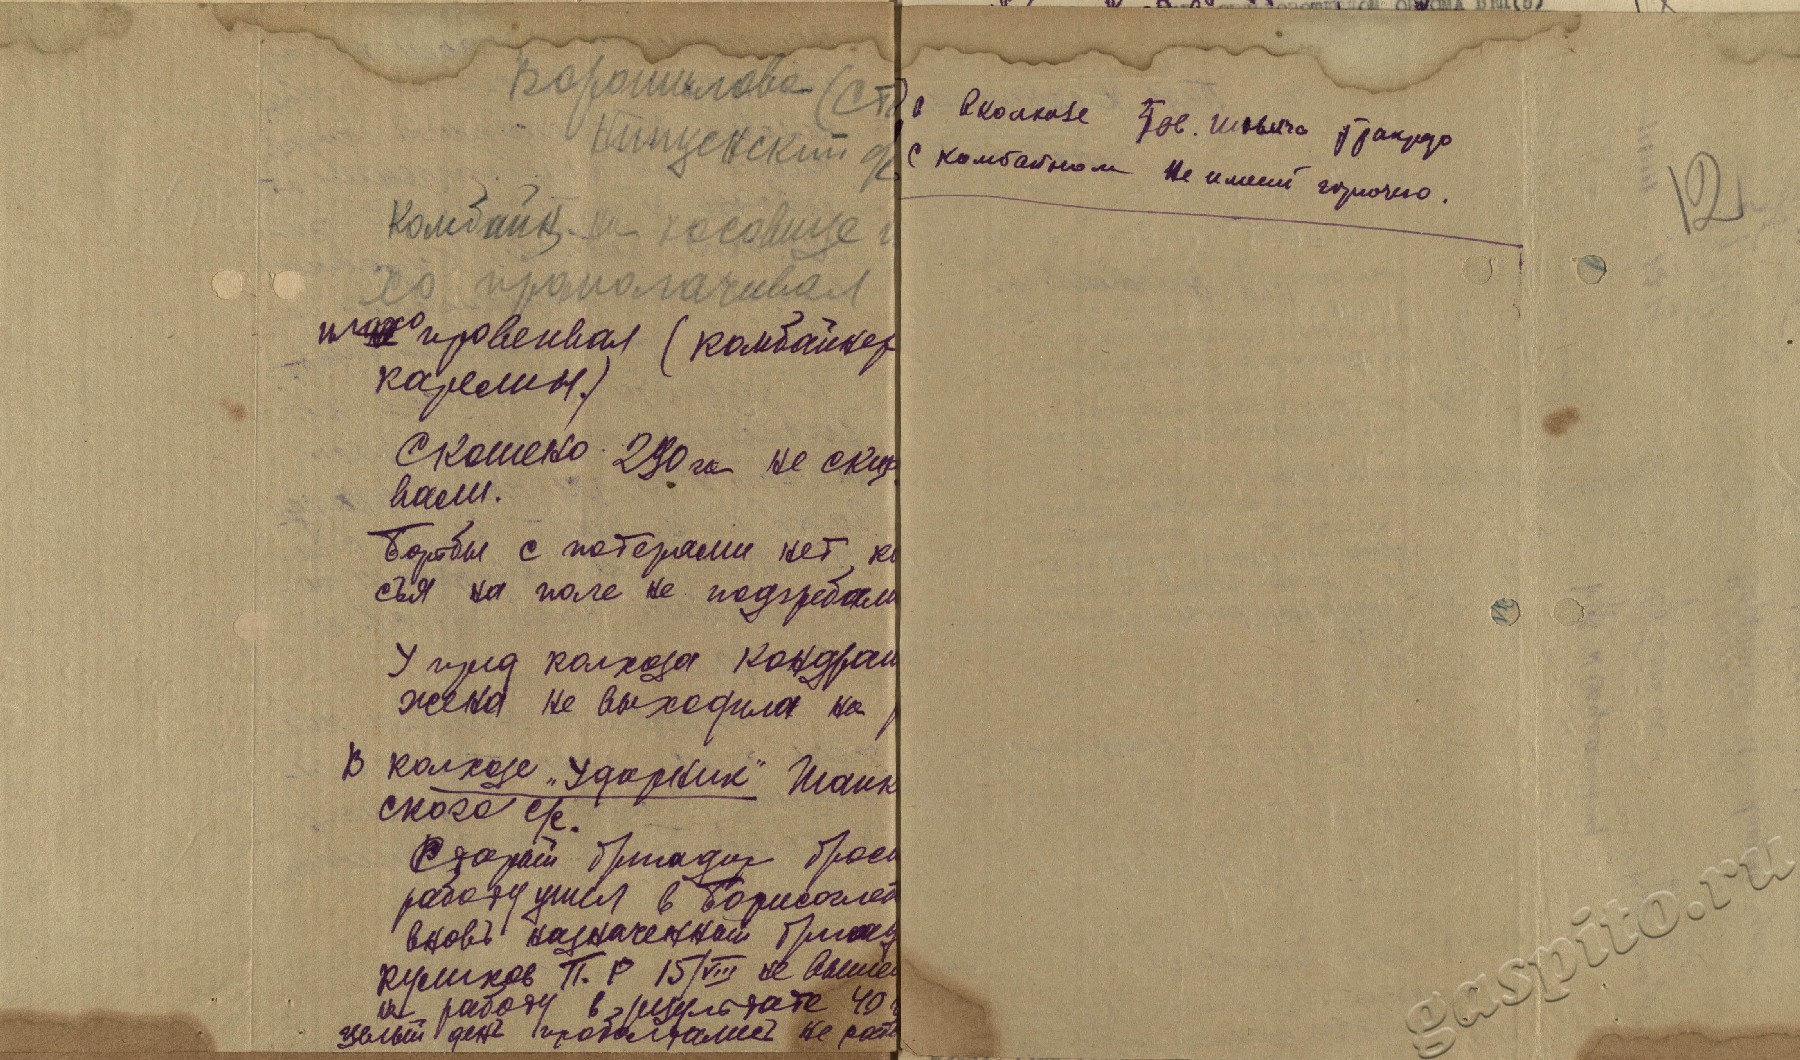 Ворошилова (Ст
Комбайн на косовице
проганачивал
плохо провеивал (комбайнер
Карелин.)
Скошено 290 га не скир
вали.
Борьбы с потерями нет, ко
сья на поле не подгребали
У пред колхоза Кондраш
жена не выходила на
В колхозе „Ударник" Шанк
ского с/с.
Старый бригадир броси
работу ушел в Борисоглеб
вновь назначенный бригад
Куликов П. Р 15/VIII не вышел
на работу в результате 40
целый день проболтались не рабо
В колхозе Тов. трактор
с комбайном не имеет горючего.
12
gaspito.ru